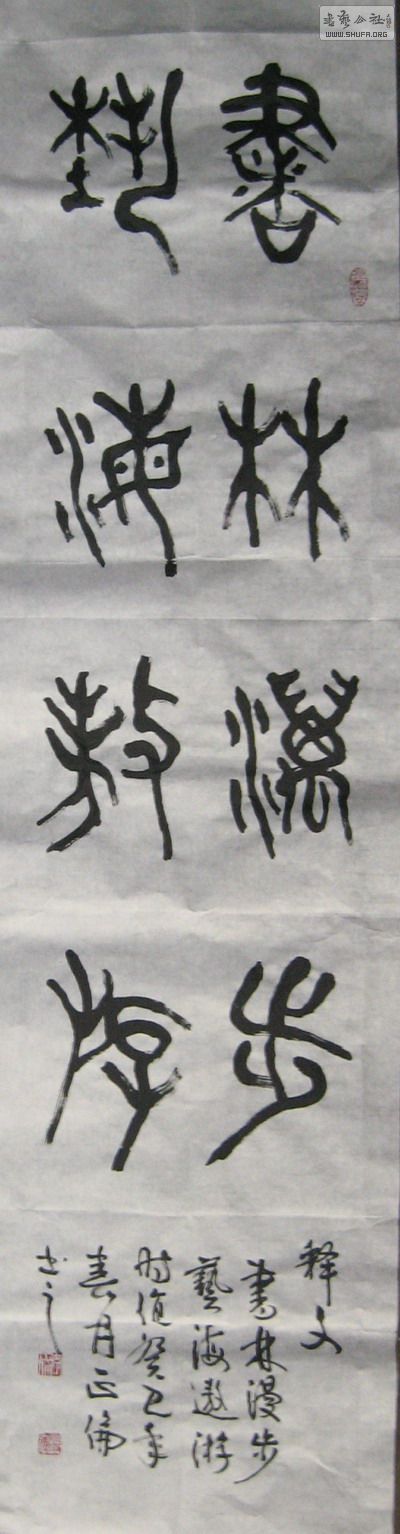 書林漫步
藝海敖游
释文
書林漫步
藝海遨游
时值癸巳年
春月正倫
书
書藝公社
WWW.SHUFA.ORG